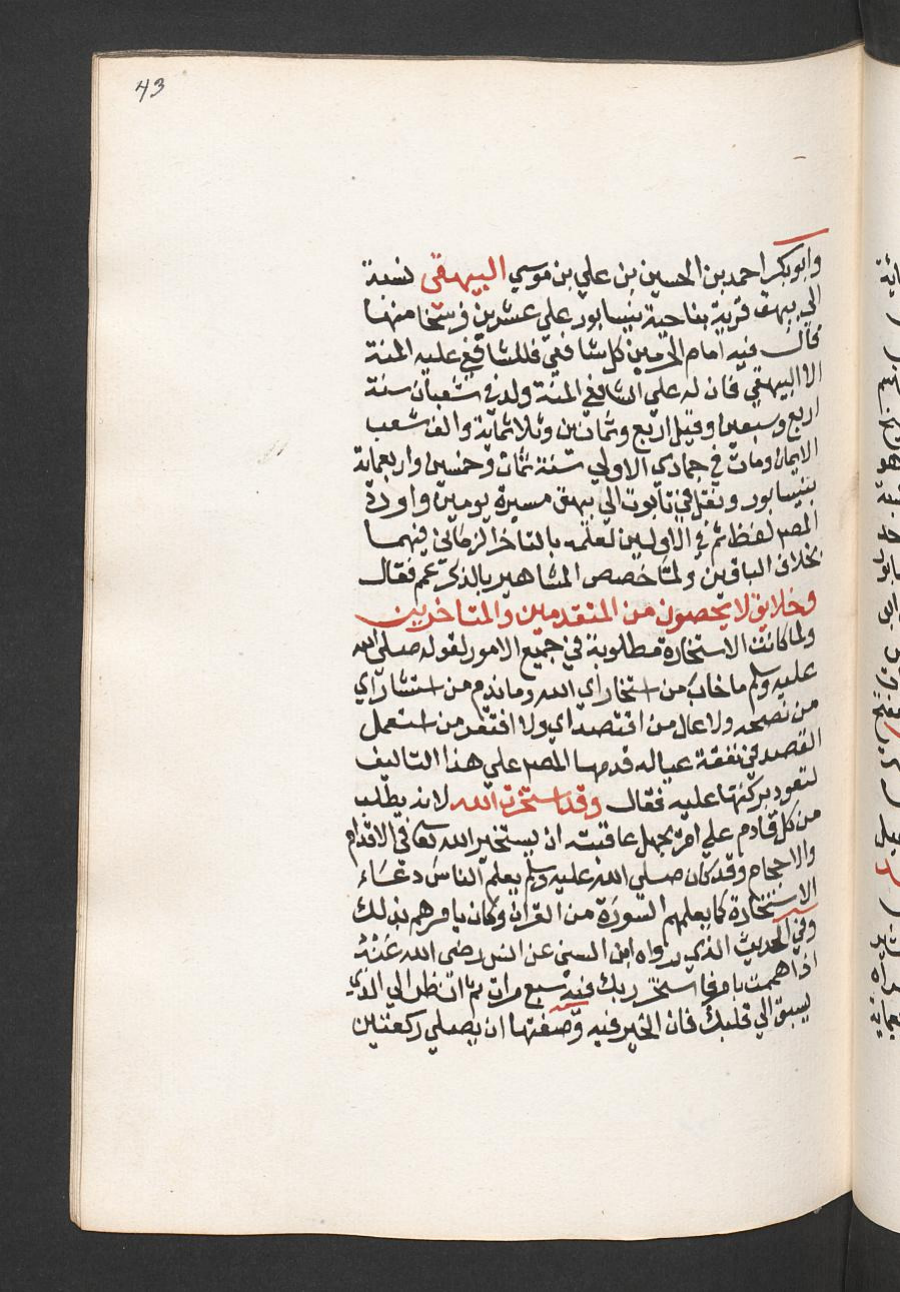 43
وابوبكر احمد بن الحسين بن علي بن موسي البيهقى نسبة
الى بيهق قرية بناحية بنيسابور علي عشرين فرسخا منها
قال فيه امام الحرمين كل شافعي فللشافعي عليه المنة
الا البيهقي فان له علي الشافعي المنة ولد في شعبان سنة
اربع وسبعين وقيل اربع وثمانين وثلاثماية والف شعب
الايمان ومات في جمادى الاولي سنة ثمان وخمسين واربعماية
بنيسابور ونقل في تابوت الي بيهق مسيرة يومين واورد
المص لفظ ثم في الاوليين لعلمه بالتاخر الزماني فيهما
بخلاف الباقين ولما خصص المشاهير بالذكر عم فقال
وخلايق لا يحصون من المتقدمين والمتاخرين
ولما كانت الاستخارة مطلوبة في جميع الامور لقوله صلى الله
عليه وسلم ما خاب من استخار اي الله وما ندم من استشار اي
من نصحه ولا عال من اقتصد اي ولا افتقر من استعمل
القصد في نفقة عياله قدمها المص علي هذا التاليف
لتعود بركتها عليه فقال وقد استخرت الله لانه يطلب
من كل قادم علي امر يجهل عاقبته ان يستخير الله تعا في الاقدام
والاحجام وقد كان صلي الله عليه وسلم يعلم الناس دعاء
الاستخارة كما يعلمهم السورة من القران وكان يامرهم بذلك
وفي الحديث الذي رواه ابن السني عن انس رضى الله عنه
اذا هممت بامر فاستخر ربك فيه سبع مرات ثم انظر الي الذي
يسبق الي قلبك فان الخير فيه وصفتها ان يصلي ركعتين